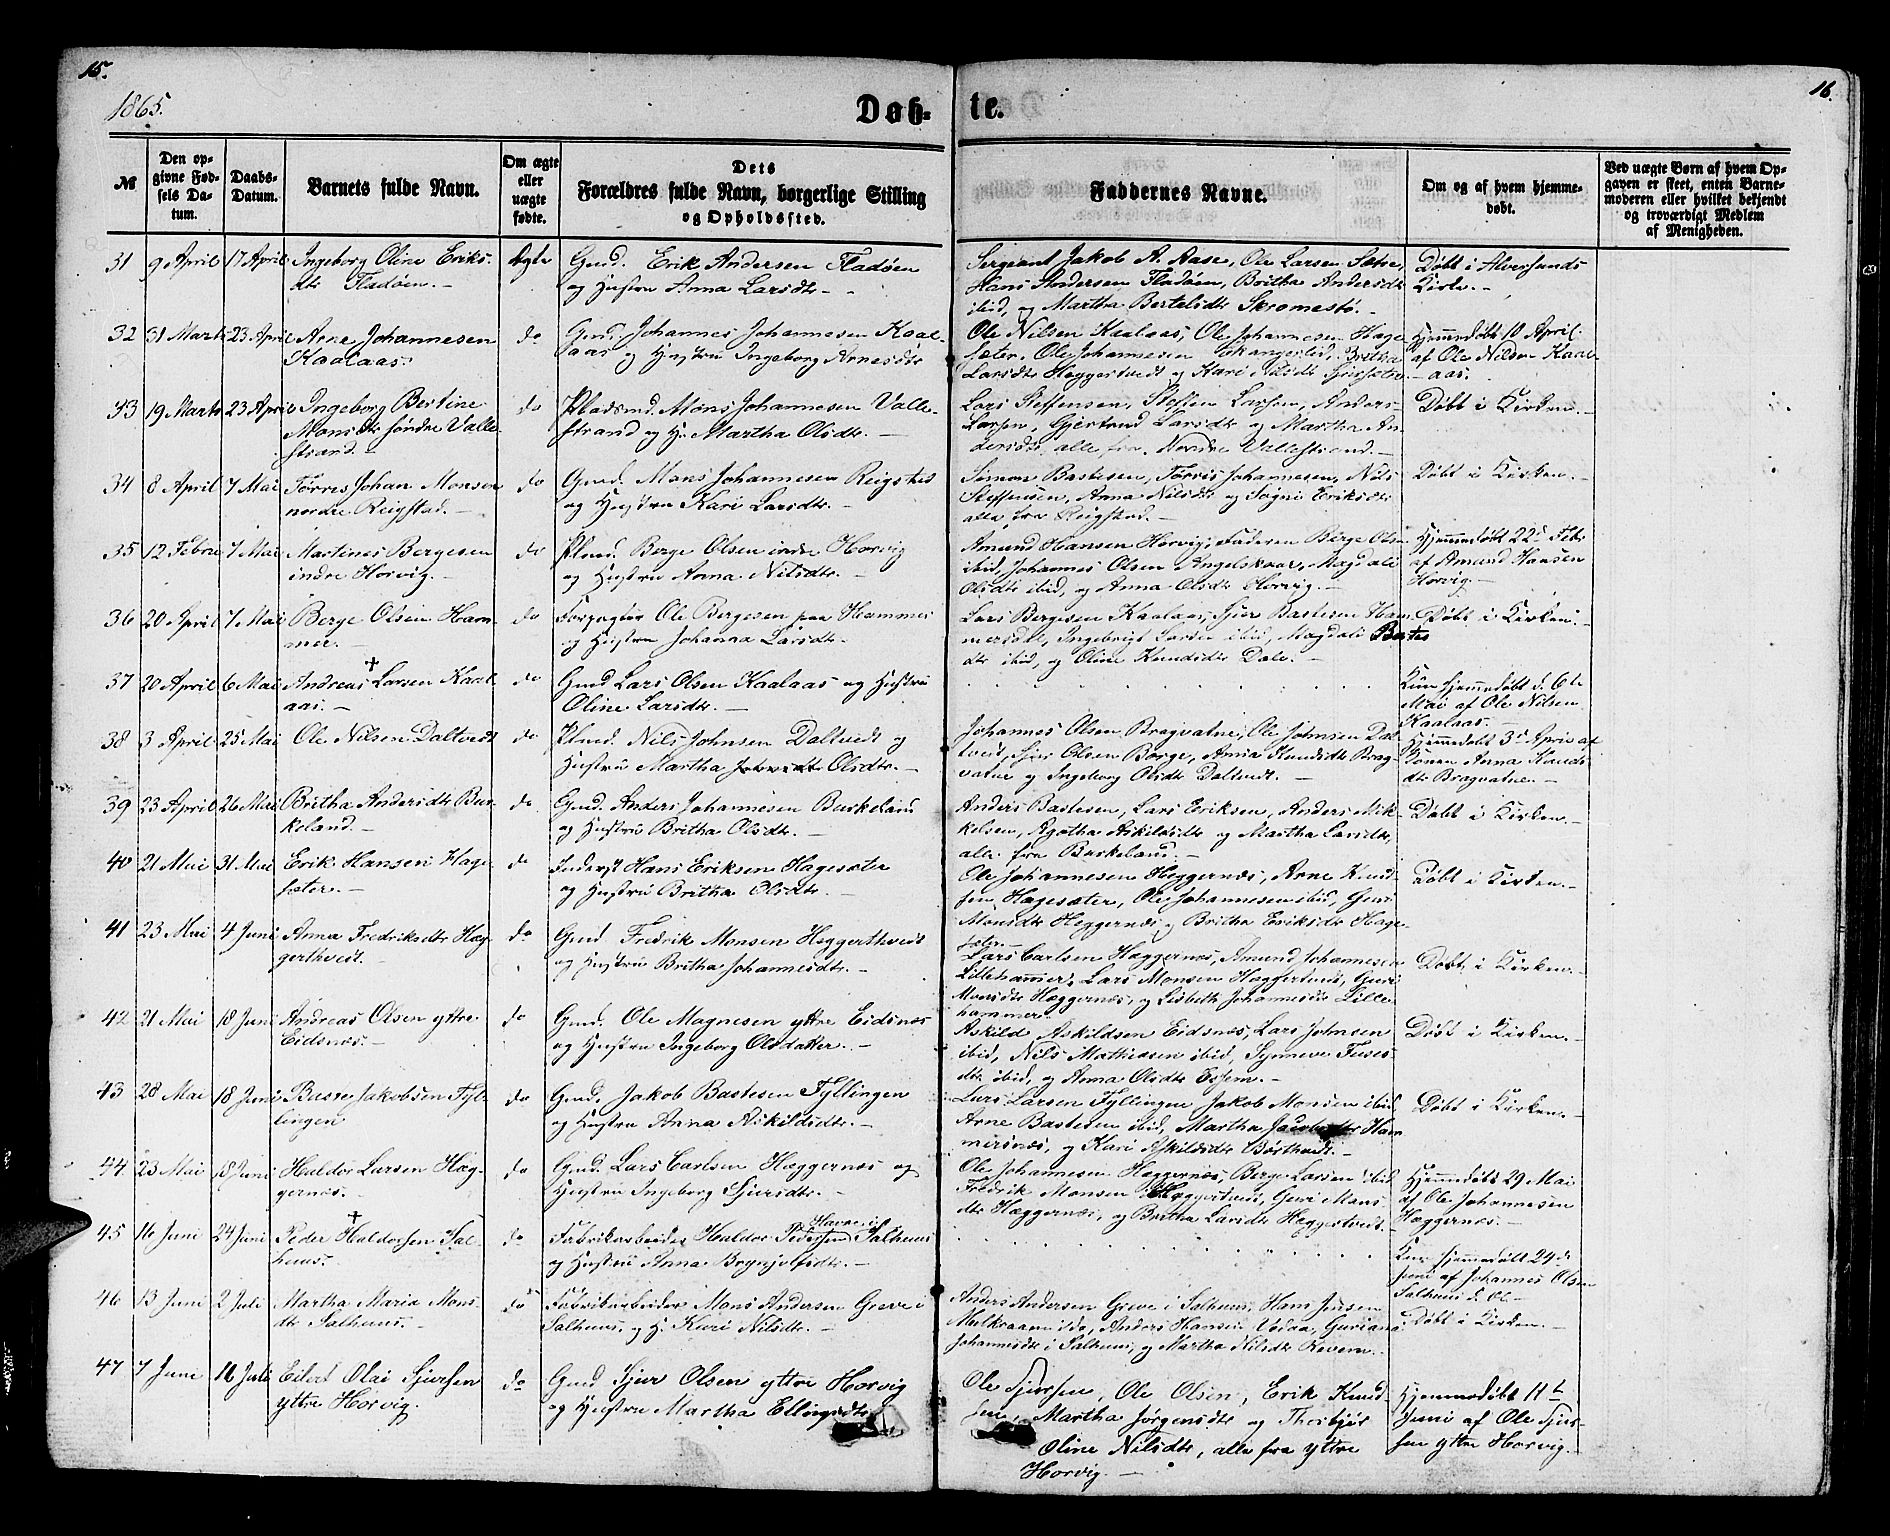 15.
16.
1865.
Døb-
te.
№
Den op-
givne Fød-
sels Da-
tum.
Daabs-
Datum.
Barnets fulde Navn.
Om ægte
eller
uægte
fødte.
Dets
Forældres fulde Navn, borgerlige Stilling
og Opholdssted.
Faddernes Navne.
Om og af hvem hjemme-
døbt.
Ved uægte Børn af hvem Op-
gaven er skeet, enten Barne-
moderen eller hvilket bekjendt
og troværdigt Medlem
af Menigheden.
31 9 April 17 April Ingeborg Oline Eriks-
dtr Fladøen. -
Ægte
Gmd. Erik Andersen Fladøen
og Hustru Anna Larsdtr. -
Sergeant Jakob A. Aase, Ole Larsen Sætre,
Hans Andersen Fladøen, Britha Andersdtr
ibid, og Martha Bertelsdtr Skromestø. -
Døbt i Alversunds
Kirke. -
32 31 Marts 23 April Arne Johannesen
Kaalaas.
do
Gmd. Johannes Johannesen Kaal-
aas og Hustru Ingeborg Arnesdtr
Ole Nilsen Kaalaas, Ole Johannesen Hage-
sæter, Ole Johannesen Skangerlid, Britha
Larsdtr Heggertvedt og Kari Nilsdtr
Hjemmedøbt 10 April
af Ole Nilsen Kaal-
aas.
33 19 Marts 23 April Ingeborg Bertine
Monsdtr søndre Valle-
strand. -
do
Pladsmd. Mons Johannesen Valle-
strand og H. Martha Olsdtr. -
Lars Steffensen, Steffen Larsen, Anders
Larsen, Gjertrud Larsdtr og Martha An-
dersdtr, alle fra Nordre Vallestrand. -
Døbt i Kirken. -
34 8 April 7 Mai Tørres Johan Monsen
nordre Reigstad. -
do
Gmd. Mons Johannesen Reigstad
og Hustru Kari Larsdtr. -
Simon Bastesen, Torris Johannesen, Nils
Steffensen, Anna Nilsdtr og Sygni Eriksdtr
alle fra Reigstad. -
Døbt i Kirken. -
35 12 Febr 7 Mai Martines Bergesen
indre Horvig. -
do
Plmd. Berge Olsen indre Horvig
og Hustru Anna Nilsdtr. -
Amund Hansen Horvig, Faderen Berge Olsen
ibid, Johannes Olsen Engelskaar, Magdali
Olsdtr ibid, og Anna Olsdtr Horvig. -
Hjemmedøbt 22d Febr
af Amund Hansen
Horvig. -
36 20 April 7 Mai Berge Olsen Ham-
mer. -
do
Forpagter Ole Bergesen paa Hammer
og Hustru Johanna Larsdtr. -
Lars Bergesen Kaalaas, Sjur Bastesen Ham-
mersdal, Ingebrigt Larsen ibid, Magdali Bastes
dtr ibid, og Oline Knudsdtr Dale. -
Døbt i Kirken. -
37 20 April 6 Mai Andreas † Larsen Kaal-
aas. -
do
Gmd Lars Olsen Kaalaas og Hustru
Oline Larsdtr. -
Kun hjemmedøbt d. 6te
Mai af Ole Nilsen
Kaalaas. -
38 3 April 25 Mai Ole Nilsen Daltvedt
do
Plmd. Nils Johnsen Daltvedt og
Hustru Martha Olsdtr. -
Johannes Olsen Bragvatne, Ole Johnsen Dal-
tvedt, Sjur Olsen Borge, Anna Knudsdtr Brag-
vatne og Ingeborg Olsdtr Daltvedt. -
Hjemmedøbt 3d April af
Konen Anna Knuds
dtr Bragvatne. -
39 23 April 26 Mai Britha Andersdtr Bur-
keland. -
do
Gmd. Anders Johannesen Burkeland
og Hustru Britha Olsdtr. -
Anders Bastesen, Lars Eriksen, Anders Mik-
kelsen, Agatha Askildsdtr og Martha Larsdtr,
alle fra Burkeland. -
Døbt i Kirken. -
40 21 Mai 31 Mai Erik Hansen Hage-
sæter. -
do
Inderst Hans Eriksen Hagesæter
og Hustru Britha Olsdtr. -
Ole Johannesen Heggernæs, Arne Knud-
sen Hagesæter, Ole Johannesen ibid, Guri
Monsdtr Heggernæs og Britha Eriksdtr Hage-
sæter. -
Døbt i Kirken. -
41 23 Mai 4 Juni Anna Fredriksdtr Hæg-
gerthvedt.
do
Gmd. Fredrik Monsen Heggerthvedt
og Hustru Britha Johannesdtr. -
Lars Carlsen Hæggernæs, Amund Johannesen
Lillehammer, Lars Monsen Hæggertvedt, Guri
Monsdtr Hæggernæs, og Lisbeth Johannesdtr Lille-
hammer.
Døbt i Kirken. -
42 21 Mai 18 Juni Andreas Olsen yttre
Eidsnæs. -
do
Gmd. Ole Magnesen yttre Eidsnæs
og Hustru Ingeborg Olsdatter. -
Askild Askildsen Eidsnæs, Lars Johnsen
ibid, Nils Mathiasen ibid, Synneve
dtr ibid, og Anna Olsdtr Essem. -
Døbt i Kirken. -
43 28 Mai 18 Juni Basse Jakobsen Fyl-
lingen
do
Gmd. Jakob Bastesen Fyllingen
og Hustru Anna Askildsdtr. -
Lars Larsen Fyllingen, Jakob Monsen ibid,
Arne Bastesen ibid, Martha Jacobsdtr Ham-
mersnæs, og Kari Askildsdtr Børthvedt. -
Døbt i Kirken. -
44 23 Mai 18 Juni Haldor Larsen Hæg-
gernæs. -
do
Gmd. Lars Carlsen Hæggernæs og
Hustru Ingeborg Sjursdtr. -
Ole Johannesen Heggernæs, Berge Larsen ibid
Fredrik Monsen Heggertvedt, Guri Mons
dtr Hæggernæs, og Britha Larsdtr Heggertvedt.
Hjemmedøbt 29 Mai
af Ole Johannesen
Hæggernæs. -
45 16 Juni 24 Juni Peder † Haldorsen Sal-
huus. -
do
Fabrikarbeider Haldor Pedersen Havre i Salhuus
og Hustru Anna Brynjulfsdtr. -
Kun hjemmedøbt 24de
Juni af Johannes Olsen
Salhuus
46 13 Juni 2 Juli Martha Maria Mons-
dtr Salhuus. -
do
Fabrikarbeider Mons Andersen Greve i
Salhuus, og H. Kari Nilsdtr. -
Anders Andersen Greve i Salhuus, Hans Jensen
Anders Hansen Vedaa, Guriana
Johannesdtr i Salhuus, og Martha Nilsdtr Revem. -
Døbt i Kirken. -
47 7 Juni 16 Juli Eilert Olai Sjursen
yttre Horvig.
do
Gmd Sjur Olsen yttre Horvig
og Hustru Martha Ellingsdtr
Ole Sjursen, Ole Olsen, Erik Knud-
sen, Martha Jørgensdtr og Thorbjør
Oline Nilsdtr, alle fra yttre
Horvig. -
Hjemmedøbt 11te
Juni af Ole Sjur-
sen yttre Horvig. -